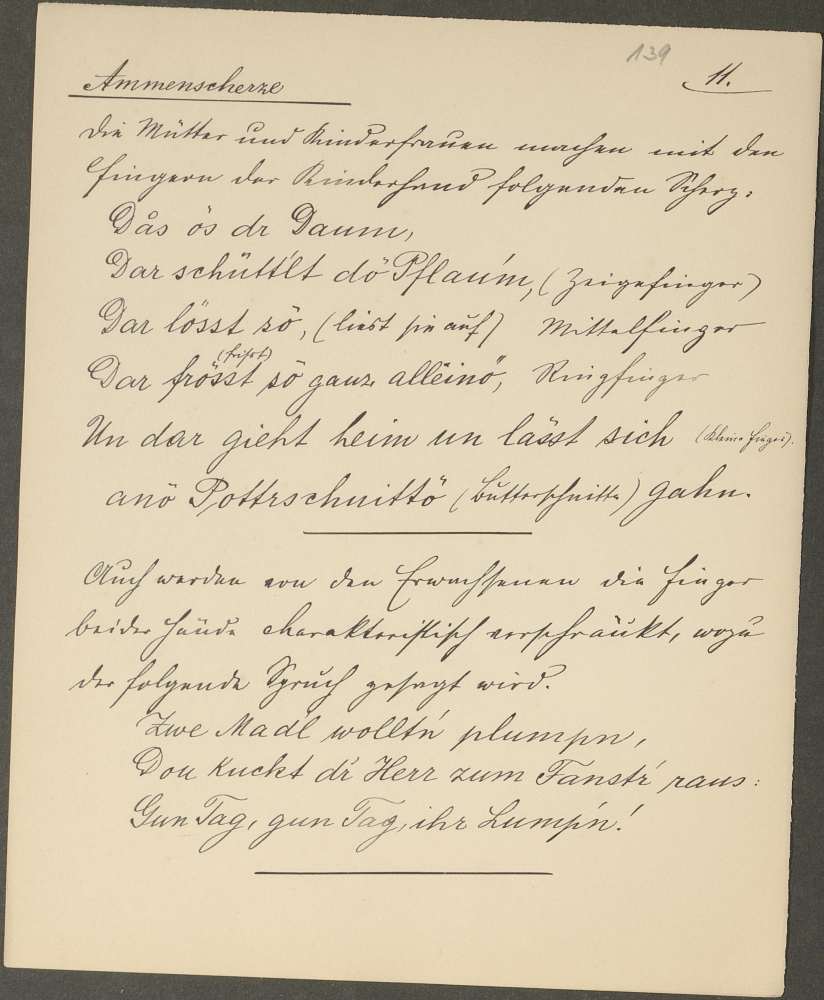 139
Ammenscherze 11.
Die Mütter und Kinderfrauen machen mit den
Fingern der Kinderhand folgenden Scherz:
Dås ös dr Daum,
Dar schütt'lt dö Pflaum, (Zeigefinger)
Dar lösst sö, (liest sie auf) Mittelfinger
(frißt)
Dar frösst sö ganz alleinö, Ringfinger
Un dar gieht heim un lässt sich (kleine Finger).
anö Pottrschnittö (Butterschnitte) gahn.
Auch werden von den Erwachsenen die Finger
beider Hände charakteristisch verschränkt, wozu
der folgende Spruch gesagt wird.
Zwe Mad'l wollt'n plumpn,
Dou kuckt dr' Herr zum Fanstr' raus:
Gun Tag, gun Tag, ihr Lump'n!